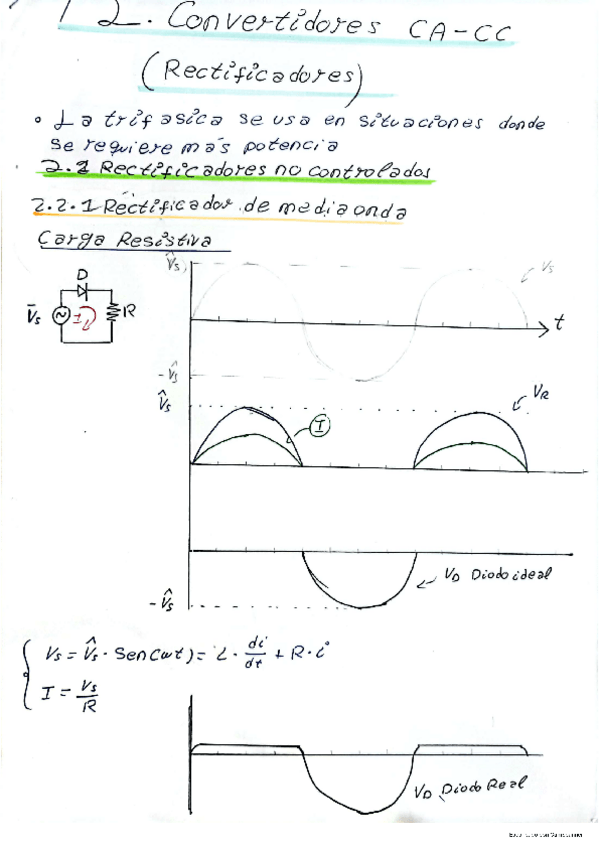 2. Convertidores CA-CC
(Rectificadores)
• La trifasica se usa en situaciones donde
se requiere mas potencia
2.2 Rectificadores no controlados
2.2.1 Rectificador de media onda
Carga Resistiva
D
V̄s
I
R
V̂s
Vs
t
-V̂s
V̂s
VR
I
VD Diodo ideal
-V̂s
Vs = V̂s · Sen(ωt) = L · di/dt + R · i
I = Vs/R
VD Diodo Real